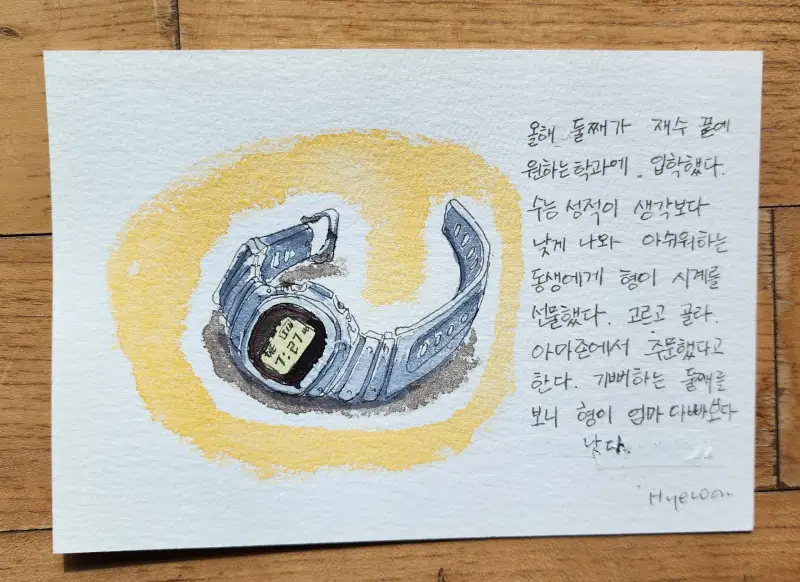 올해 둘째가 재수 끝에
원하는학과에 입학했다.
수능 성적이 생각보다
낮게 나와 아쉬워하는
동생에게 형이 시계를
선물했다. 고르고 골라.
아마존에서 주문했다고
한다. 기뻐하는 둘째를
보니 형이 엄마 아빠보다
낫다.
Hyewon
7:27